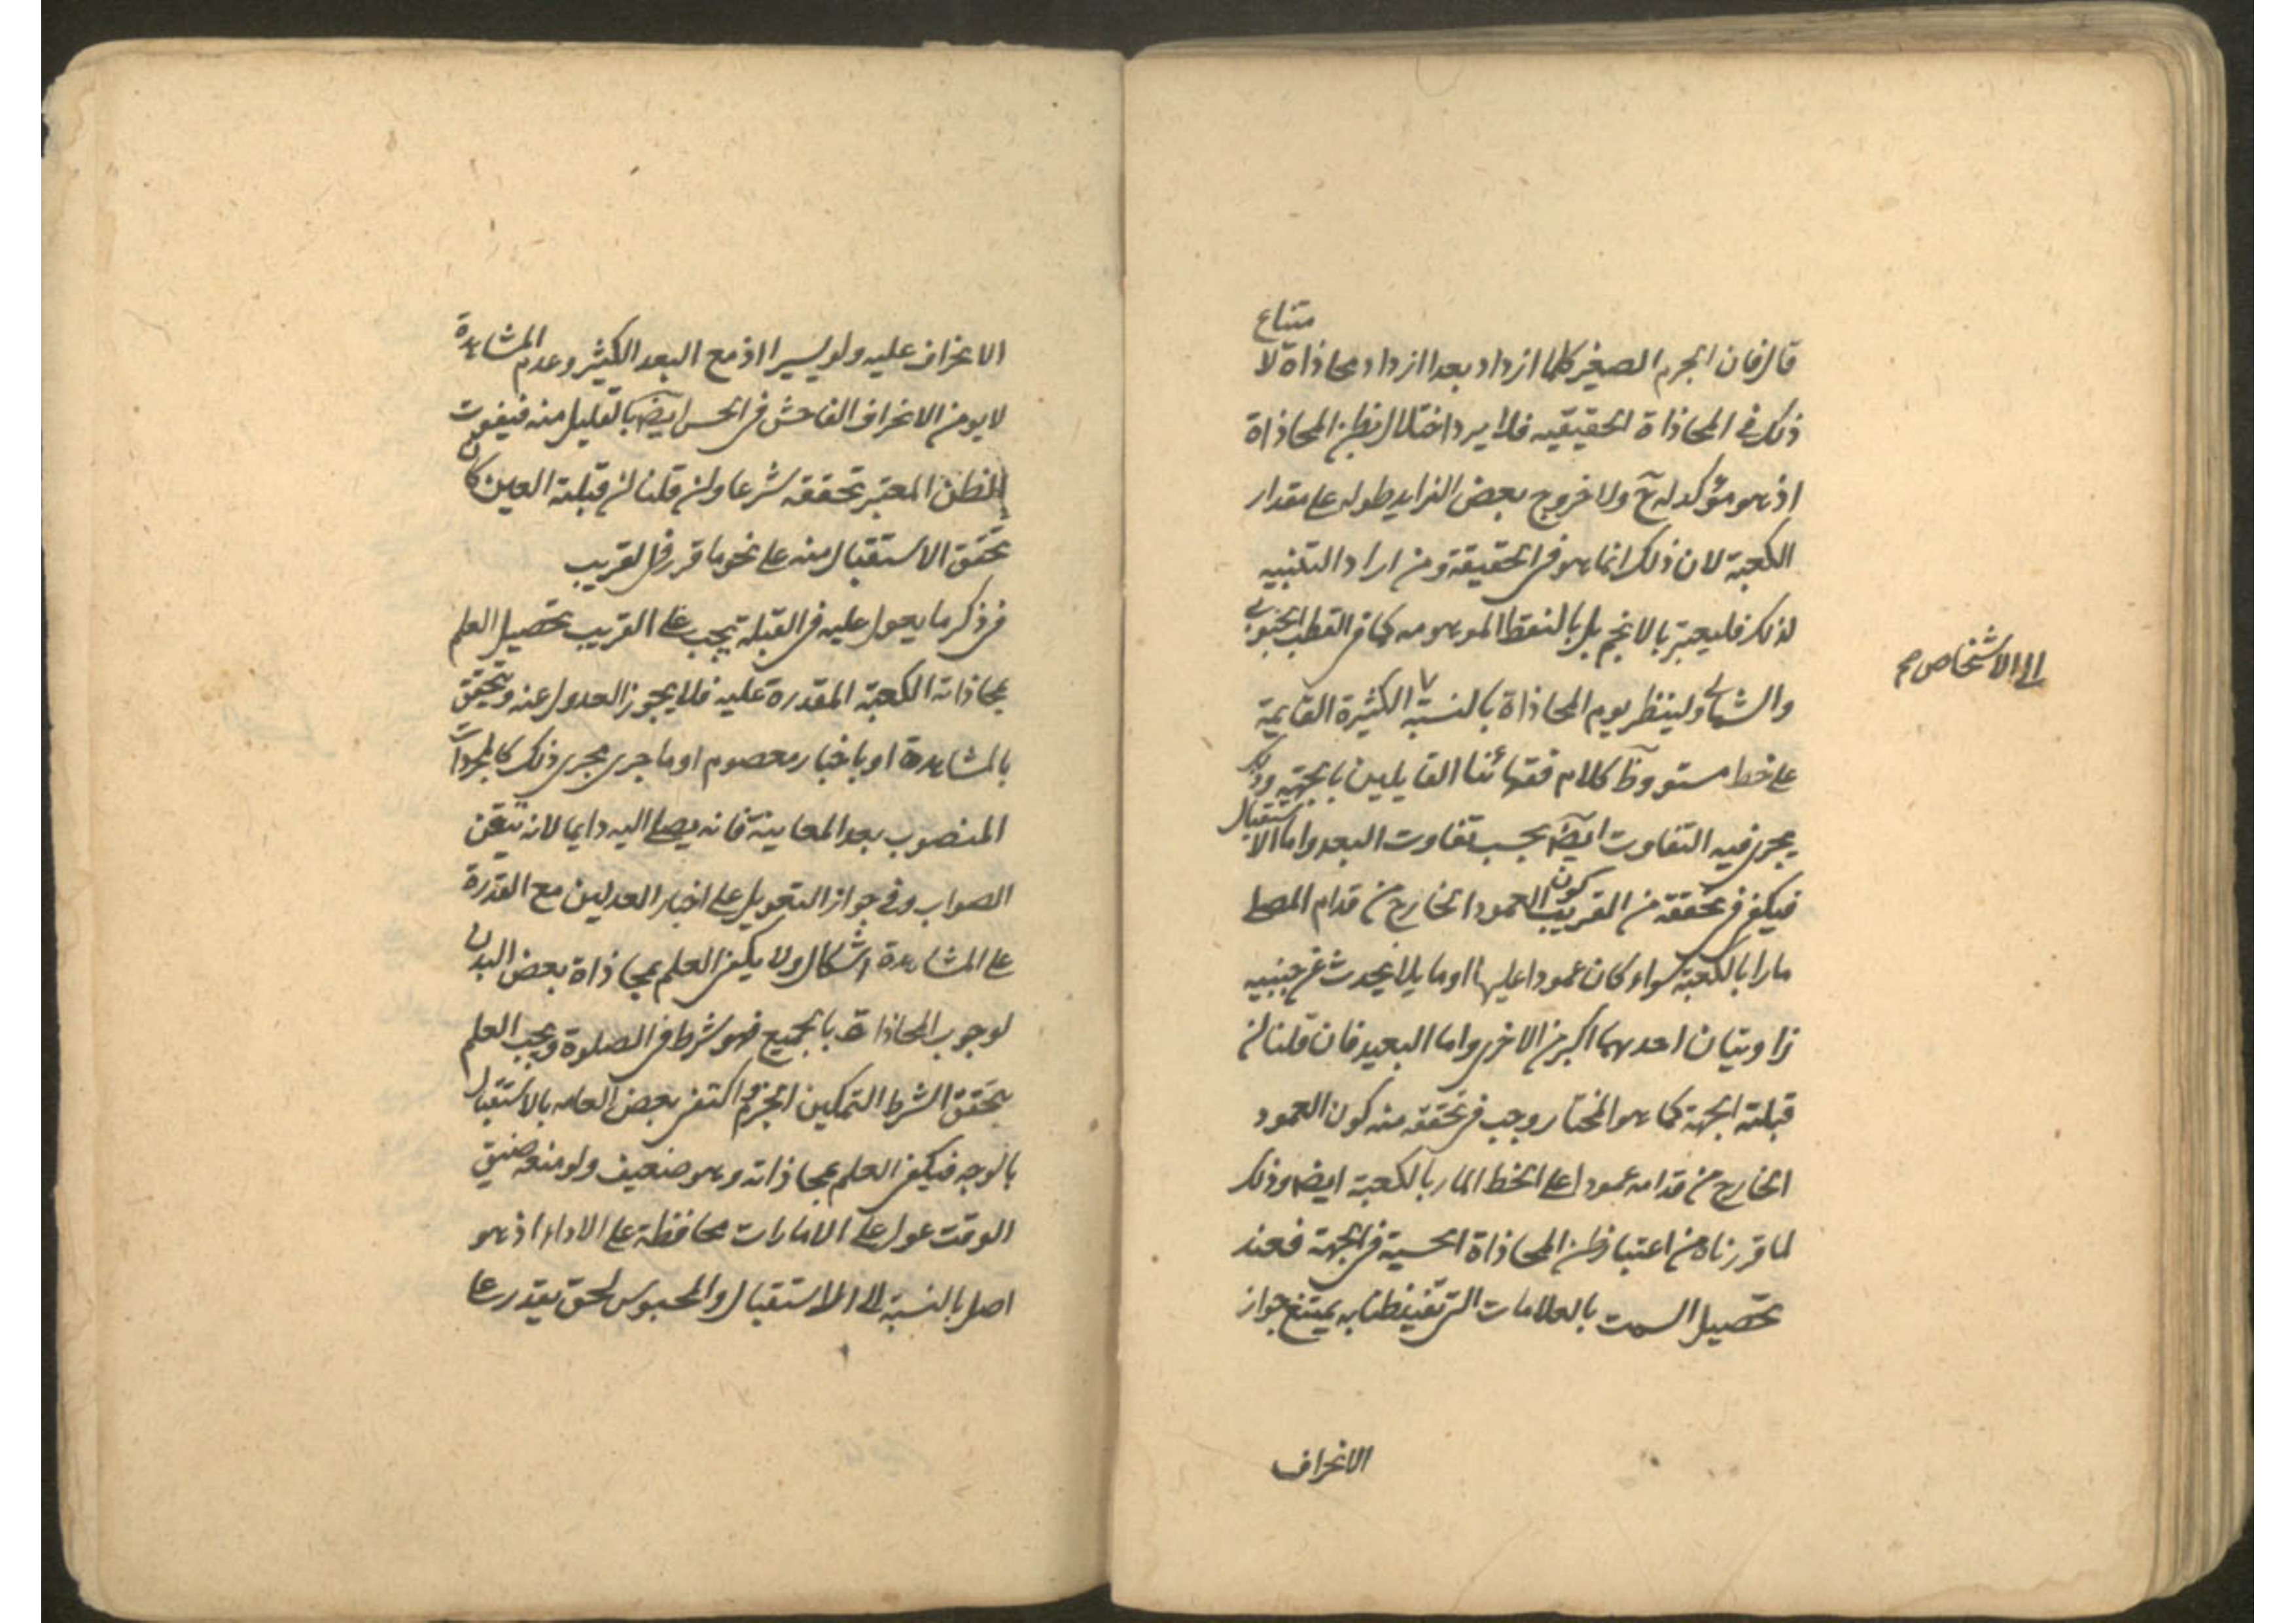 قال فان الجرم الصغير كلما ازداد بعدا ازداد محاذاة لامتناع
ذلك في المحاذاة الحقيقيه فلا يرد اختلال بظن المحاذاة
اذ هو مؤكد له ح ولا خروج بعض الزايد طوله على مقدار
الكعبة لان ذلك انما هو في الحقيقة ومن اراد التنبيه
لذلك فليعتبر بالانجم بل بالنقط الموهومه كما في القطب الجنوبي
والشمالي ولينظر يوم المحاذاة بالنسبة الكثيرة القايمة
الى الاشخاص صح
على خط مستو وظ كلام فقهائنا القايلين بالجهة وذلك
يجرى فيه التفاوت ايضا بحسب تفاوت البعد واما الاستقبال
فيكفي في تحققه من القريب كون العمود الخارج من قدام المصلي
مارا بالكعبة سواء كان عمودا عليها او مايلا يحدث عن جنبيه
زاويتان احدهما اكبر من الاخرى واما البعيد فان قلنا ان
قبلته الجهة كما هو المختار وجب في تحققه منه كون العمود
الخارج من قدامه عمودا على الخط المار بالكعبة ايضا وذلك
لما قررناه من اعتبار ظن المحاذاة الحسية في الجهة فعند
تحصيل السمت بالعلامات التي تفيد ظنا به يمتنع جواز
الانحراف
الانحراف عليه ولو يسيرا اذ مع البعد الكثير وعدم المشاهدة
لا يومن الانحراف الفاحش في الحس ايضا بالقليل منه فيفوت
الظن المعتبر تحققه شرعا وان قلنا ان قبلته العين كان
تحقق الاستقبال منه على نحو ما قرر في القريب
في ذكر ما يعول عليه في القبلة يجب على القريب تحصيل العلم
بمحاذاته الكعبة المقدرة عليه فلا يجوز العدول عنه ويتحقق
بالمشاهدة او باخبار معصوم او ما جرى مجرى ذلك كالمحراب
المنصوب بعد المعاينة فانه يصلي اليه دايما لانه تيقن
الصواب وفي جواز التعويل على اخبار العدلين مع القدرة
على المشاهدة اشكال ولا يكفي العلم بمحاذاة بعض البدن
لوجوب المحاذاة بالجميع فهو شرط في الصلوة ويجب العلم
بتحقق الشرط التمكين الجزم واكتفى بعض العامه بالاستقبال
بالوجه فيكفي العلم بمحاذاته وهو ضعيف ولو منعه ضيق
الوقت عول على الامارات محافظة على الاداء اذ هو
اصل بالنسبة الى الاستقبال والمحبوس لحق يقدر على